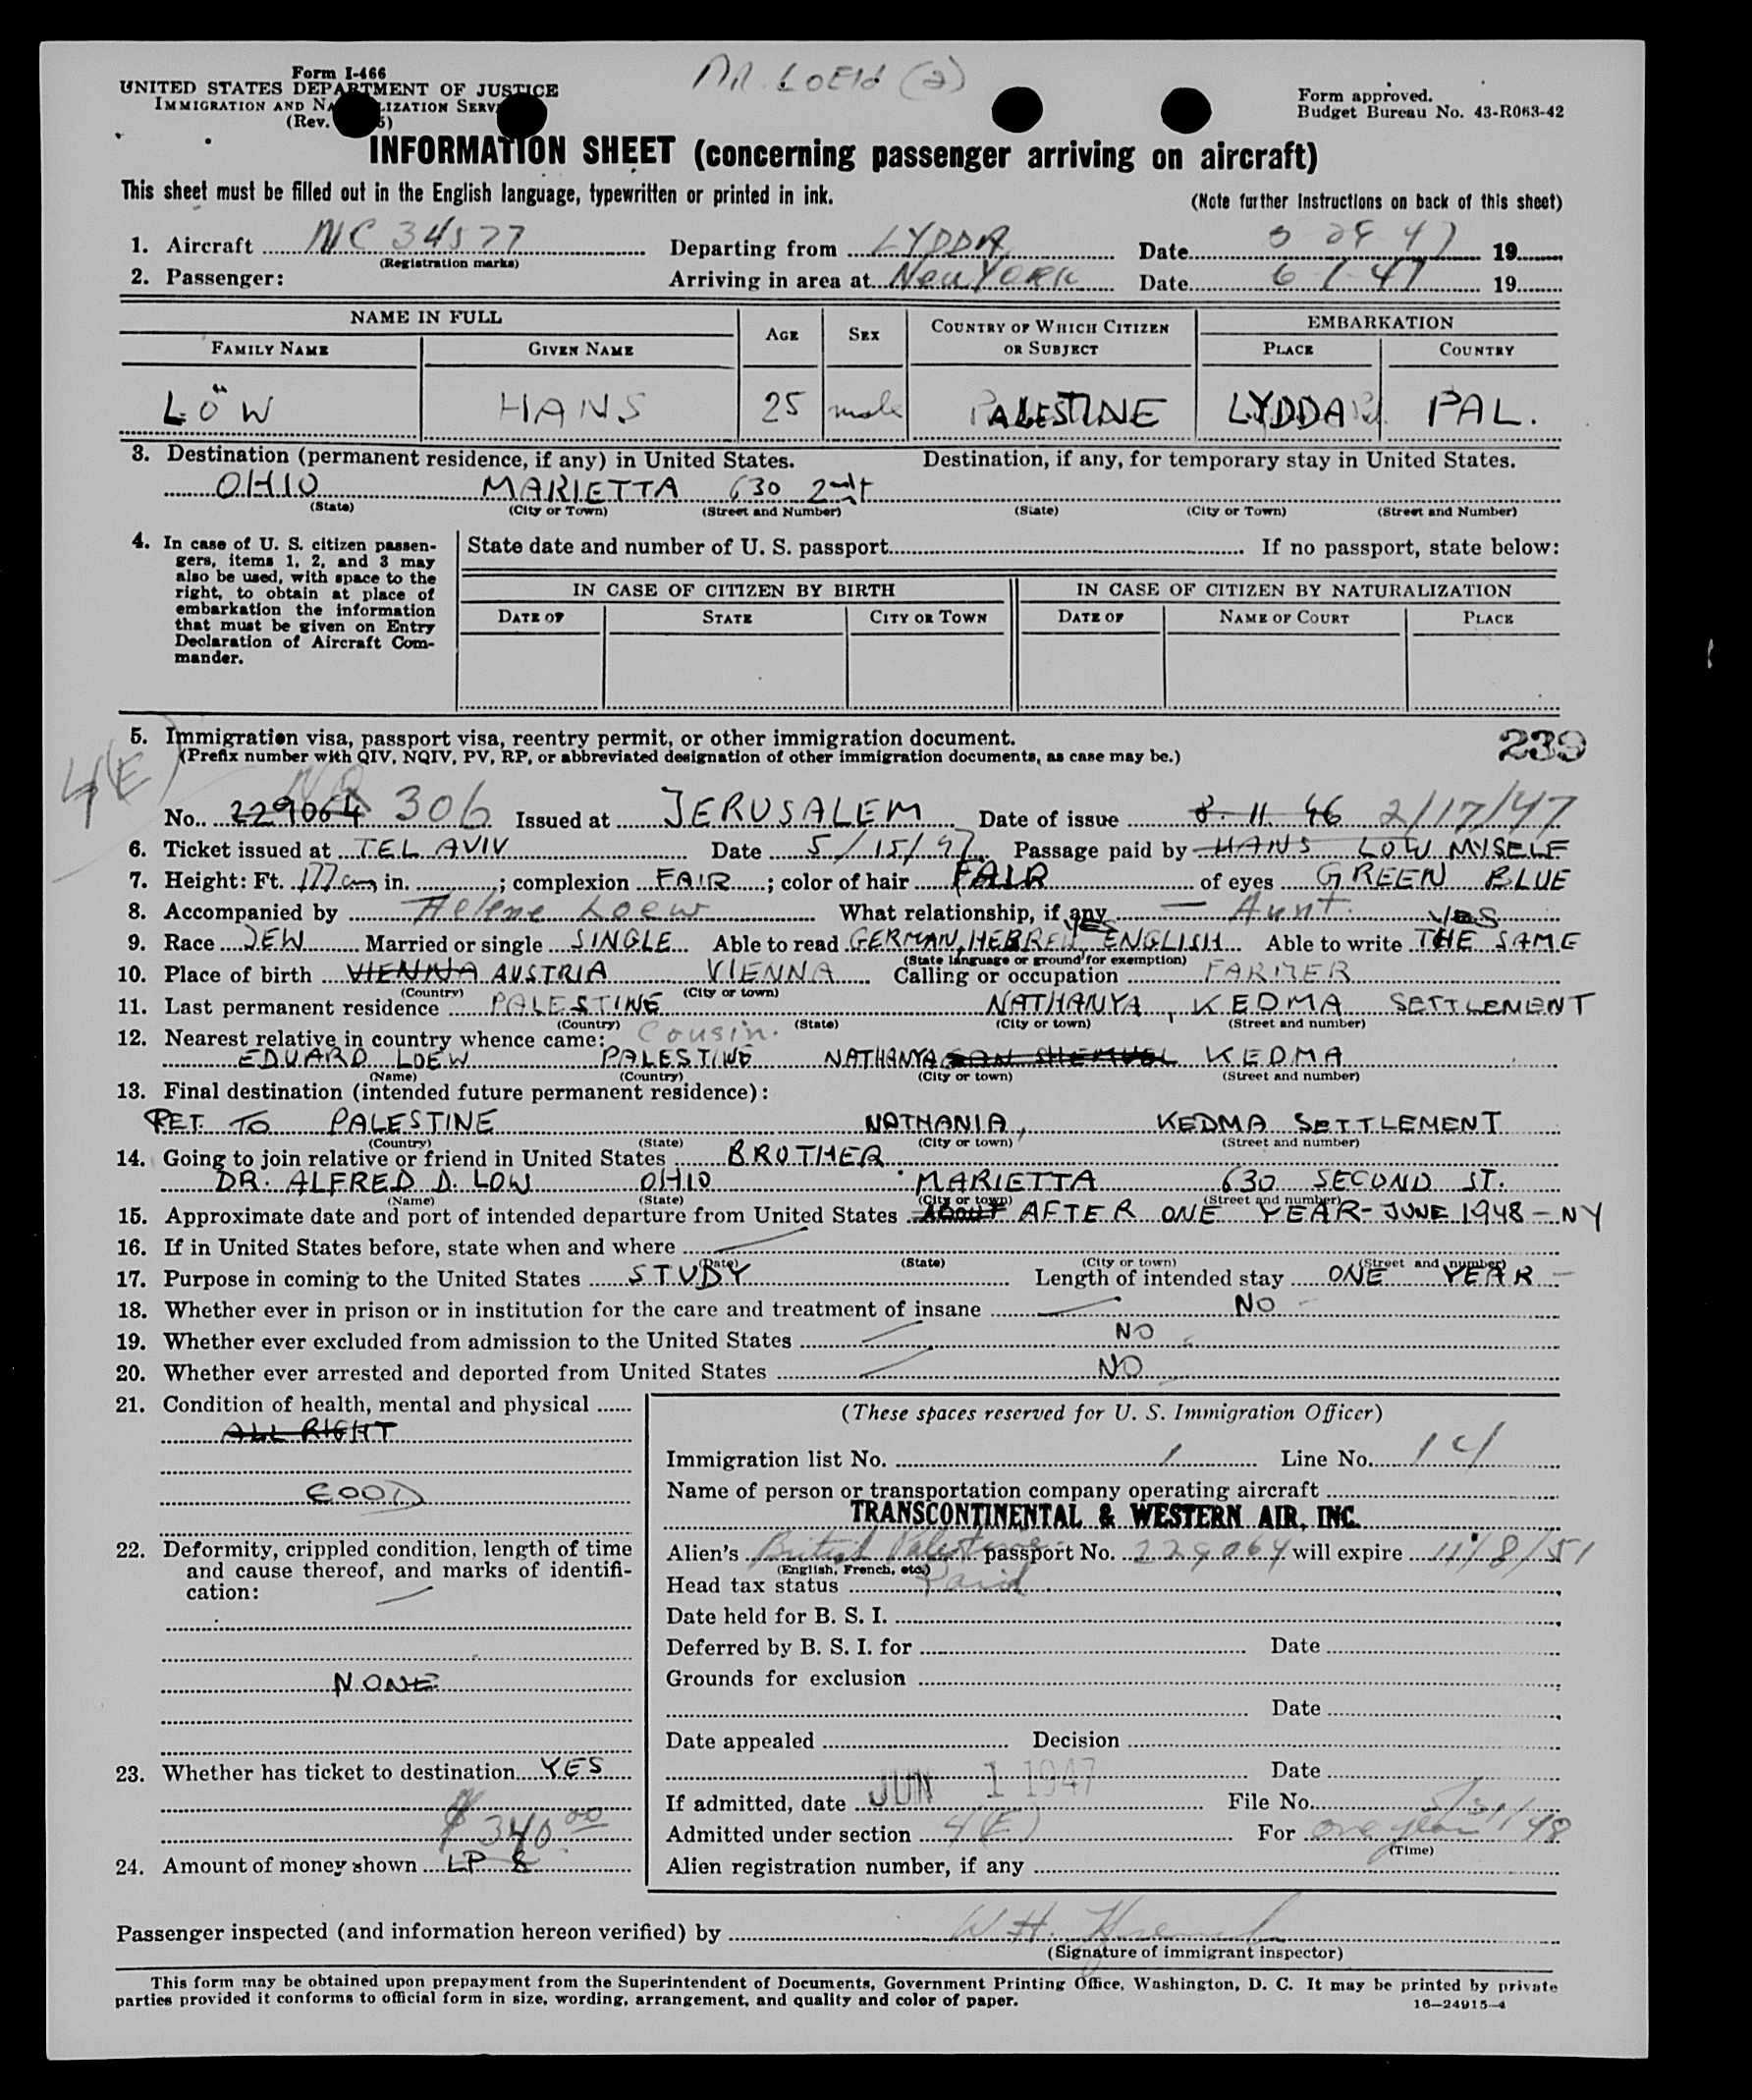 MR. LOEW (2)
Form I-466
UNITED STATES DEPARTMENT OF JUSTICE
IMMIGRATION AND NATURALIZATION SERVICE
(Rev.
Form approved.
Budget Bureau No. 43-R063-42
INFORMATION SHEET (concerning passenger arriving on aircraft)
This sheet must be filled out in the English language, typewritten or printed in ink.
(Note further Instructions on back of this sheet)
1. Aircraft NC 34577 Departing from LYDDA Date 5 29 47 19
(Registration marks)
2. Passenger: Arriving in area at New York Date 6-1-47 19
NAME IN FULL AGE SEX COUNTRY OF WHICH CITIZEN OR SUBJECT EMBARKATION
FAMILY NAME GIVEN NAME PLACE COUNTRY
LÖW HANS 25 male PALESTINE LYDDA PAL.
3. Destination (permanent residence, if any) in United States. Destination, if any, for temporary stay in United States.
OHIO MARIETTA 630 2nd
(State) (City or Town) (Street and Number) (State) (City or Town) (Street and Number)
4. In case of U. S. citizen passen-
gers, items 1, 2, and 3 may
also be used, with space to the
right, to obtain at place of
embarkation the information
that must be given on Entry
Declaration of Aircraft Com-
mander.
State date and number of U. S. passport If no passport, state below:
IN CASE OF CITIZEN BY BIRTH IN CASE OF CITIZEN BY NATURALIZATION
DATE OF STATE CITY OR TOWN DATE OF NAME OF COURT PLACE
5. Immigration visa, passport visa, reentry permit, or other immigration document.
(Prefix number with QIV, NQIV, PV, RP, or abbreviated designation of other immigration documents, as case may be.)
239
4(E)
NQ
No. 229064 306 Issued at JERUSALEM Date of issue 8. 11. 46 2/17/47
6. Ticket issued at TEL AVIV Date 5/15/47 Passage paid by HANS LOW MYSELF
7. Height: Ft. 177 cm in. ; complexion FAIR ; color of hair FAIR of eyes GREEN BLUE
8. Accompanied by Helene Loew What relationship, if any — Aunt.
yes yes
9. Race JEW Married or single SINGLE Able to read GERMAN, HEBREW, ENGLISH Able to write THE SAME
(State language or ground for exemption)
10. Place of birth VIENNA AUSTRIA VIENNA Calling or occupation FARMER
(Country) (City or town)
11. Last permanent residence PALESTINE NATHANYA, KEDMA SETTLEMENT
(Country) (State) (City or town) (Street and number)
12. Nearest relative in country whence came: Cousin.
EDUARD LOEW PALESTINE NATHANYA KEDMA
(Name) (Country) (City or town) (Street and number)
13. Final destination (intended future permanent residence):
RET. TO PALESTINE NATHANIA, KEDMA SETTLEMENT
(Country) (State) (City or town) (Street and number)
14. Going to join relative or friend in United States BROTHER
DR. ALFRED D. LOW OHIO MARIETTA 630 SECOND ST.
(Name) (State) (City or town) (Street and number)
15. Approximate date and port of intended departure from United States ABOUT AFTER ONE YEAR - JUNE 1948 - NY
16. If in United States before, state when and where
(Date) (State) (City or town) (Street and number)
17. Purpose in coming to the United States STUDY Length of intended stay ONE YEAR -
18. Whether ever in prison or in institution for the care and treatment of insane NO -
19. Whether ever excluded from admission to the United States NO
20. Whether ever arrested and deported from United States NO
21. Condition of health, mental and physical
ALL RIGHT
GOOD
22. Deformity, crippled condition, length of time
and cause thereof, and marks of identifi-
cation:
NONE
23. Whether has ticket to destination YES
$340.00
24. Amount of money shown LP 8
(These spaces reserved for U. S. Immigration Officer)
Immigration list No. 1 Line No. 14
Name of person or transportation company operating aircraft
TRANSCONTINENTAL & WESTERN AIR, INC.
Alien's British Palestine passport No. 229064 will expire 11/8/51
(English, French, etc.)
Head tax status Paid
Date held for B. S. I.
Deferred by B. S. I. for Date
Grounds for exclusion
Date
Date appealed Decision
Date
If admitted, date JUN 1 1947 File No.
5/31/48
Admitted under section 4(E) For one year
(Time)
Alien registration number, if any
Passenger inspected (and information hereon verified) by W H.
(Signature of immigrant inspector)
This form may be obtained upon prepayment from the Superintendent of Documents, Government Printing Office, Washington, D. C. It may be printed by private
parties provided it conforms to official form in size, wording, arrangement, and quality and color of paper.
16—24915-4